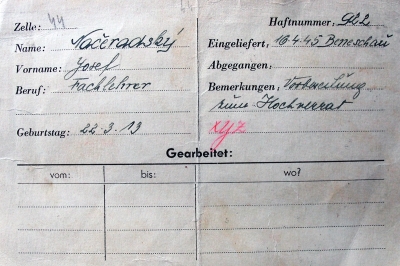 Zelle: 44
Haftnummer:
Name: Načeradský
Eingeliefert: 16.4.45 Beneschau
Vorname: Josef
Abgegangen:
Beruf: Fachlehrer
Bemerkungen: Vorbereitung
zum Hochverrat
Geburtstag: 22.3.13
XYZ
Gearbeitet:
vom: bis: wo?